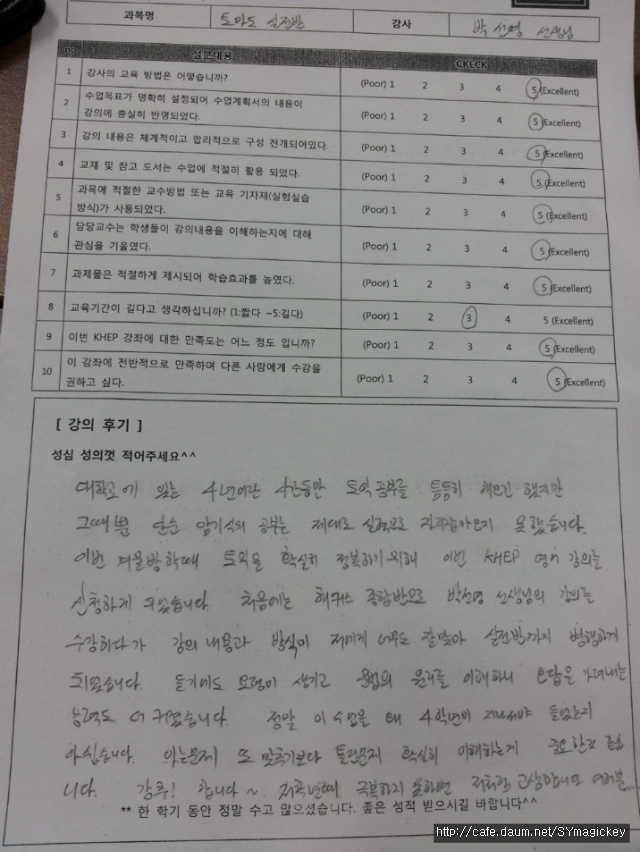 과목명 토마토 실전반 강사 박선영 선생님
no 설문내용 CKECK
1 강사의 교육 방법은 어떻습니까? (Poor) 1 2 3 4 5 (Excellent)
2 수업목표가 명확히 설정되어 수업계획서의 내용이
강의에 충실히 반영되었다. (Poor) 1 2 3 4 5 (Excellent)
3 강의 내용은 체계적이고 합리적으로 구성 전개되어있다. (Poor) 1 2 3 4 5 (Excellent)
4 교재 및 참고 도서는 수업에 적절히 활용 되었다. (Poor) 1 2 3 4 5 (Excellent)
5 과목에 적절한 교수방법 또는 교육 기자재(실험실습
방식)가 사용되었다. (Poor) 1 2 3 4 5 (Excellent)
6 담당교수는 학생들이 강의내용을 이해하는지에 대해
관심을 기울였다. (Poor) 1 2 3 4 5 (Excellent)
7 과제물은 적절하게 제시되어 학습효과를 높였다. (Poor) 1 2 3 4 5 (Excellent)
8 교육기간이 길다고 생각하십니까? (1:짧다 ~5:길다) (Poor) 1 2 3 4 5 (Excellent)
9 이번 KHEP 강좌에 대한 만족도는 어느 정도 입니까? (Poor) 1 2 3 4 5 (Excellent)
10 이 강좌에 전반적으로 만족하며 다른 사람에게 수강을
권하고 싶다. (Poor) 1 2 3 4 5 (Excellent)
[ 강의 후기 ]
성심 성의껏 적어주세요^^
대학교에 있는 4년이란 시간동안 토익공부를 틈틈히 해오긴 했지만
그때뿐 단순 암기식의 공부는 제대로 실력으로 자리잡아오지 못했습니다.
이번 겨울방학때 토익을 확실히 정복하기위해 이번 KHEP 영어 강의를
신청하게 되었습니다. 처음에는 해커스 종합반으로 박선영 선생님의 강의를
수강하다가 강의 내용과 방식이 저에게 너무도 잘맞아 실전반까지 병행하게
되었습니다. 듣기에도 요령이 생기고 문법의 원리를 이해하니 오답을 가려내는
능력도 더 커졌습니다. 정말 이 수업을 왜 4학년이 지나서야 들었는지
아쉽습니다. 아는문제 또 맞추기보다 틀린문제 확실히 이해하는게 중요한것 같습
니다. 강추! 합니다~ 저학년때 극복하지 못하면 저처럼 고생합니다 여러분...
** 한 학기 동안 정말 수고 많으셨습니다. 좋은 성적 받으시길 바랍니다^^
http://cafe.daum.net/SYmagickey